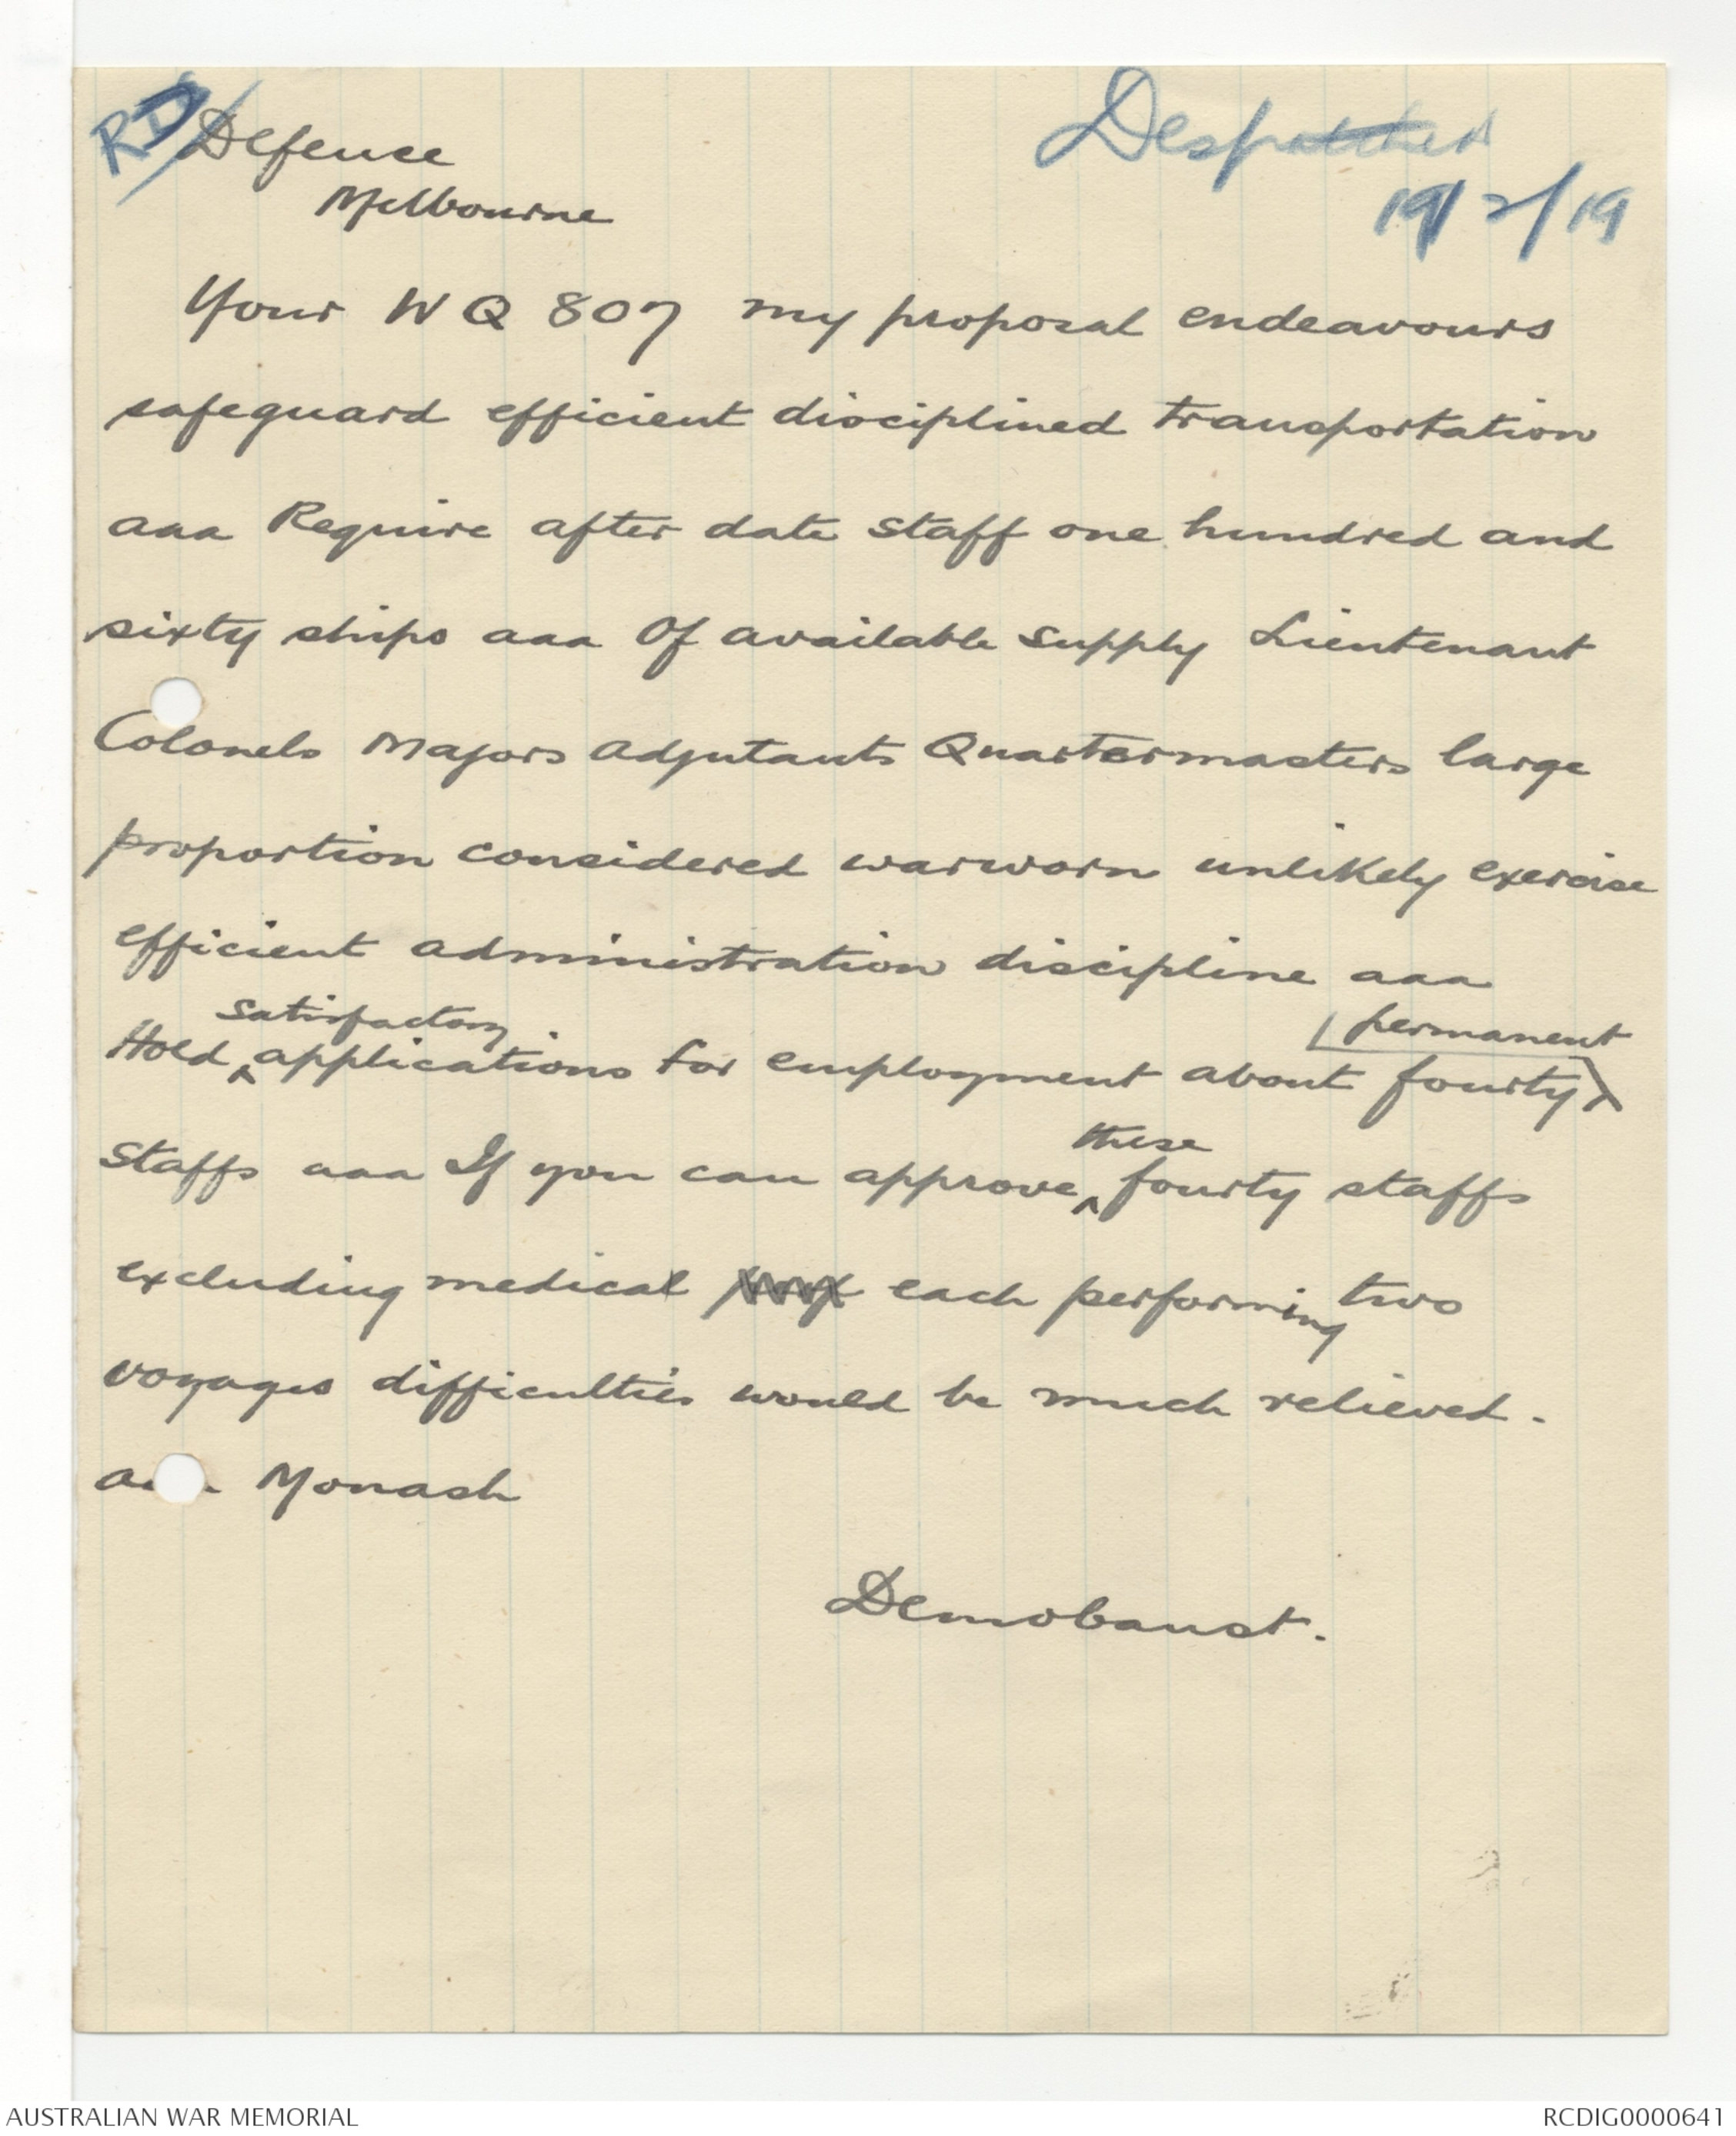 RD/ Defence
Despatched
Melbourne
19/2/19
Your WQ 807 my proposal endeavours
safeguard efficient disciplined transportation
aaa Require after date staff one hundred and
sixty ships aaa Of available supply Lieutenant
Colonels Majors Adjutants Quartermasters large
proportion considered warworn unlikely exercise
efficient administration discipline aaa
satisfactory permanent
Hold applications for employment about fourty
these
staffs aaa If you can approve fourty staffs
excluding medical each performing two
voyages difficulties would be much relieved.
a Monash
Demobaust.
AUSTRALIAN WAR MEMORIAL
RCDIG0000641